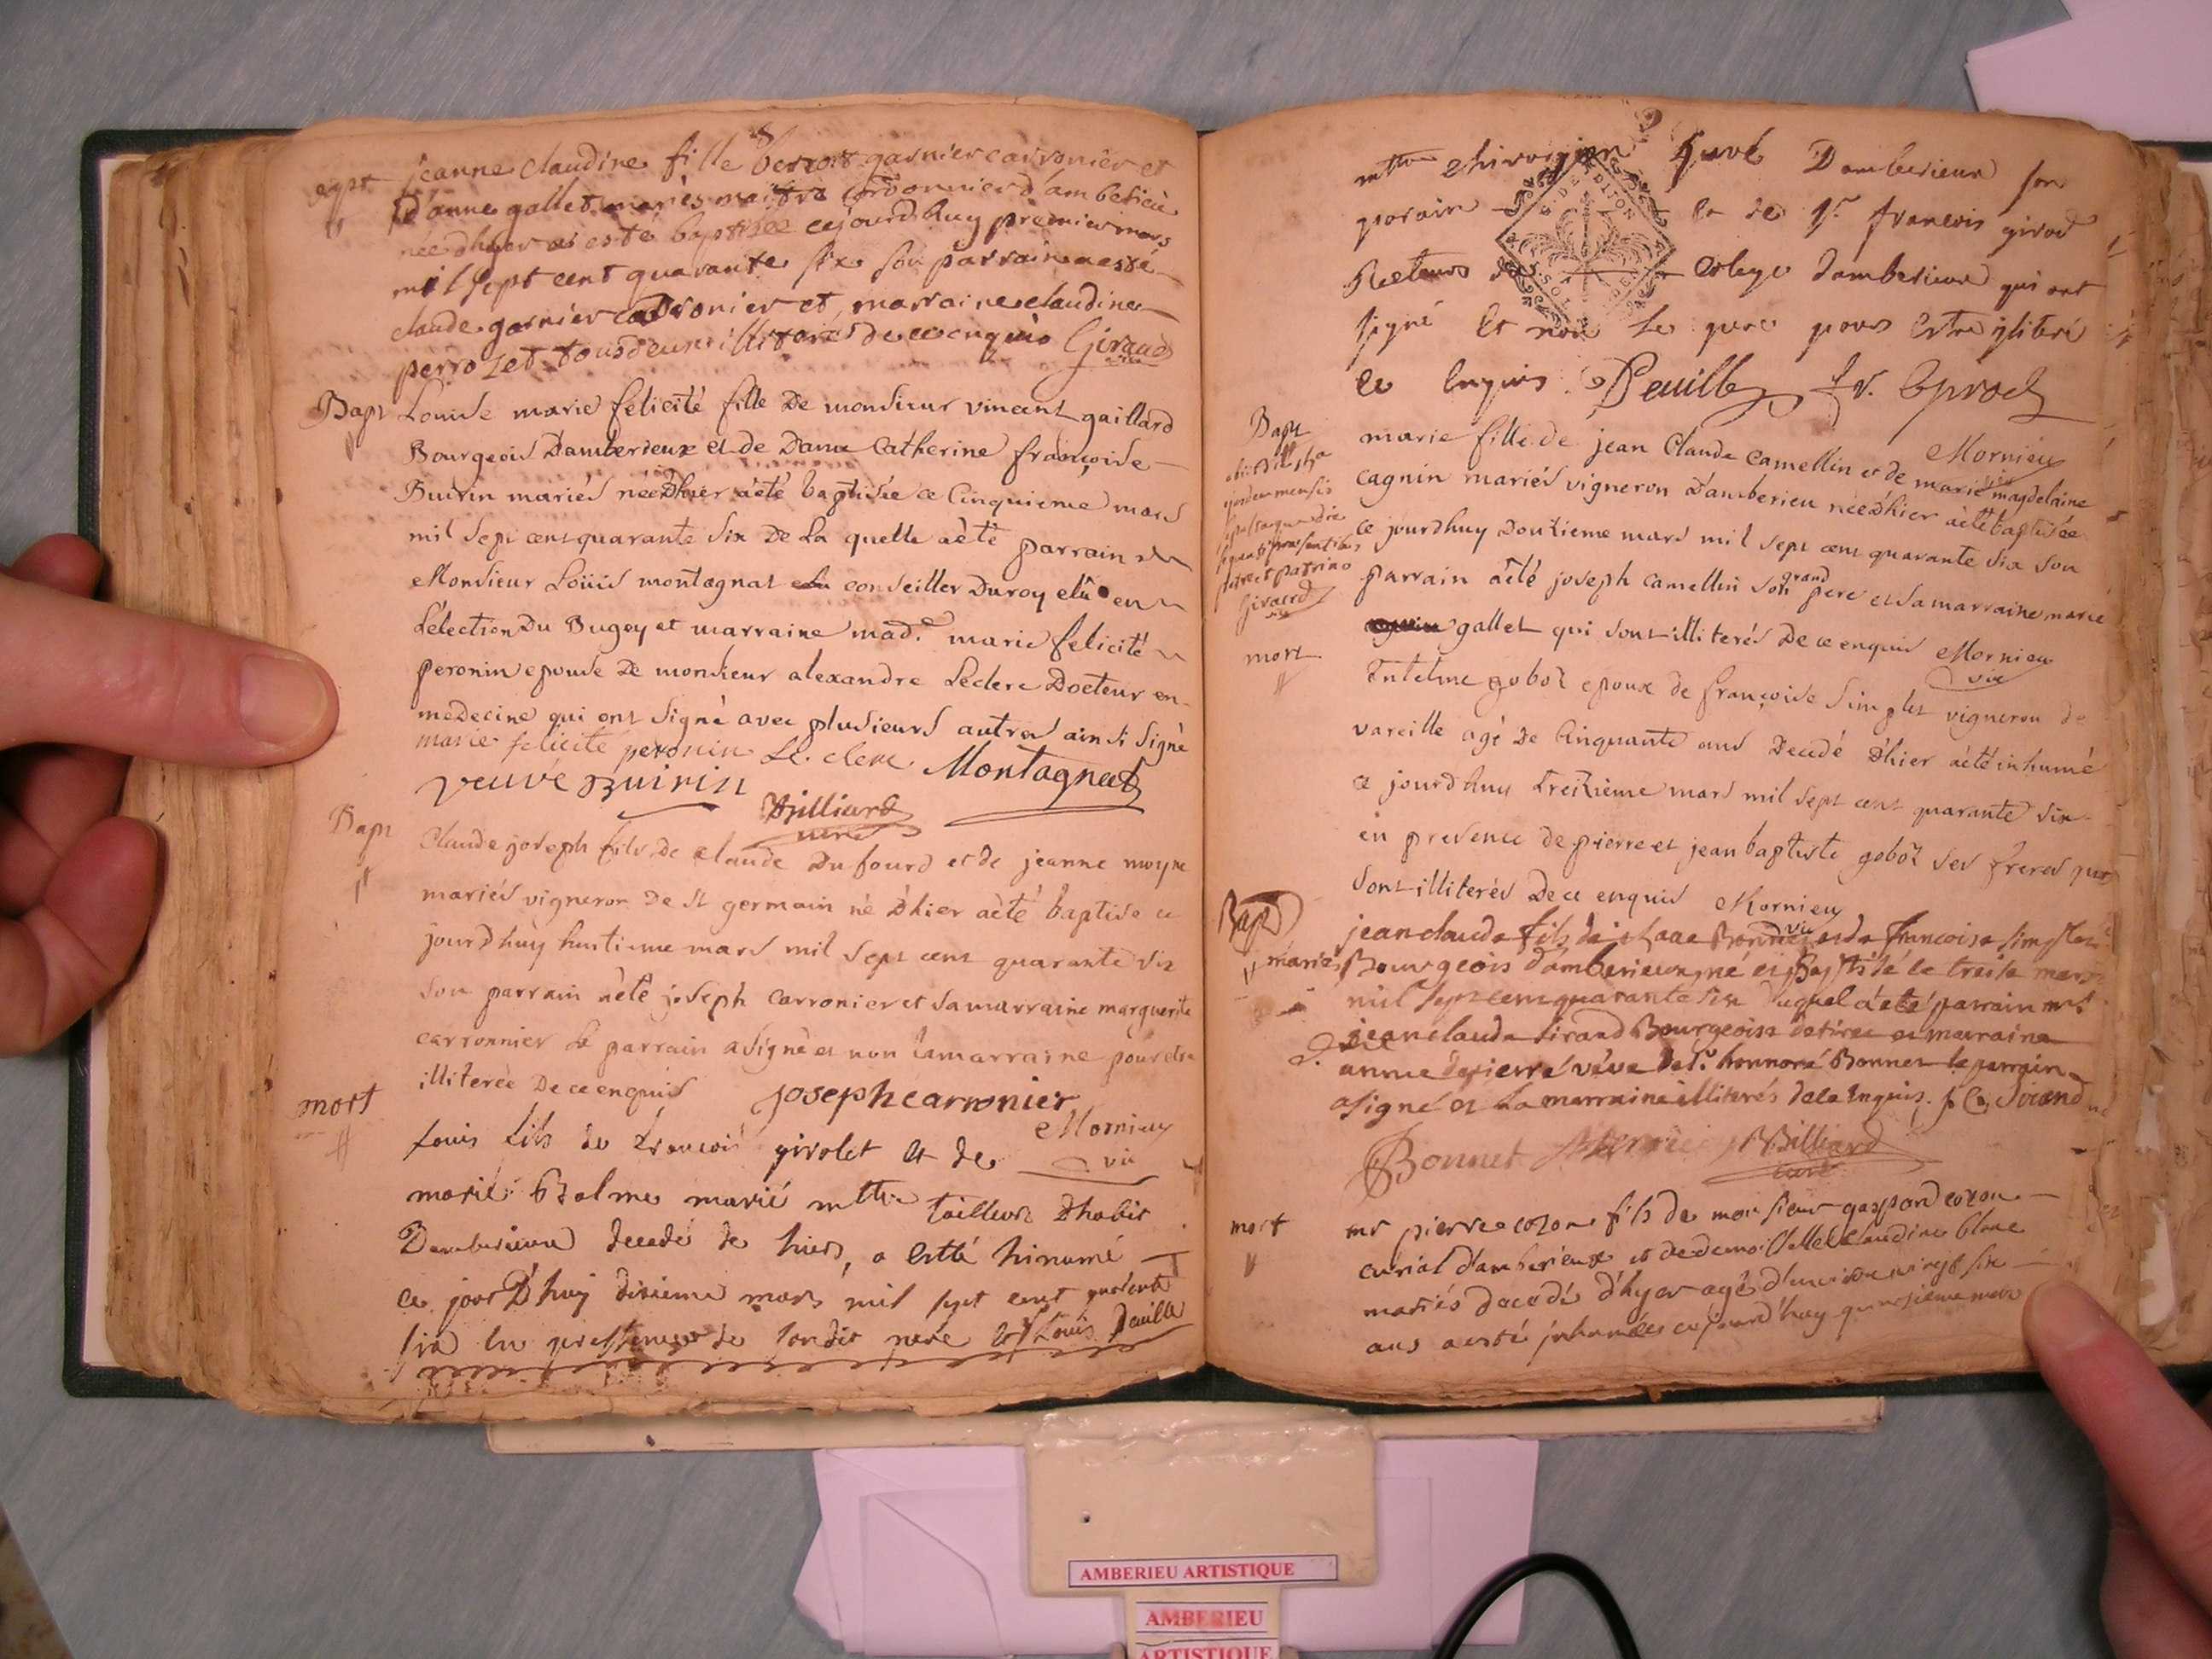 8
Bapt jeanne claudine fille benoit garnier carronier et
d'anne gallet mariés maitre cordonnier d'amberieu
née dhyer as esté baptisée cejourdhuy premier mars
mil sept cent quarante six son parrain a esté
claude garnier carronier et marraine claudine
perrozet tous deux illiteré de ce enquis Giraud
Bapt Louise marie felicité fille De monsieur vincent gaillard
Bourgeois D'amberieux et de Dame Catherine françoise
Buirin mariés née D'hier a été baptisée ce Cinquieme mars
mil sept cent quarante six De La quelle a été parrain
Monsieur Loüis montagnat conseiller Du roy elû en
L'élection Du Bugey et marraine mad.e marie felicité
peronin epouse De monsieur alexandre Leclerc Docteur en
medecine qui ont signé avec plusieurs autres ainsi signé
marie felicité peronin Le. clerc Montagnat
veuve Buirin
Billiard
curé
Bapt Claude joseph fils De claude Dufourd et de jeanne moyne
mariés vigneron De st germain né D'hier a été baptisé ce
jourdhuy huitieme mars mil sept cent quarante six
son parrain a été joseph carronier et sa marraine marguerite
carronnier Le parrain a signé et non la marraine pour etre
illiterée De ce enquis joseph carronier
Mornieu
vic
mort Louis fils de françois girolet et de
marie Balme marié mttre tailleur D'habit
Damberieux decedé de hier, a esté hinumé
ce jour D'huy dixieme mars mil sept cent quarante
six en pressence de son dit pere et Louis Deville
mttre chirorgien juré Damberieux son
parain et de Sr. francois girod
Recteur du colege damberieux qui ont
signé Et non Le pere pour Estre iliteré
de Enquis
Mornieu
vic
Bapt marie fille de jean Claude Camellin et de marie magdelaine
cagnin mariés vigneron D'amberieu née D'hier a été baptisée
ce jourdhuy Douzieme mars mil sept cent quarante six son
parrain a été joseph camellin son grand pere et sa marraine marie
gallet qui sont illiterés De ce enquis Mornieu
vic
Girard
mort Entelme gobot epoux de françoise simplet vigneron de
vareille agé De Cinquante ans Decedé D'hier a été inhumé
ce jourdhuy treizieme mars mil sept cent quarante six
en presence de pierre et jean baptiste gobot ses freres qui
sont illiterés De ce enquis Mornieu
vic
Bapt jean claude fils de Bonnet et de francoise simplet
mariés Bourgeois d'amberieux né et Baptisé le treise mars
mil sept cent quarante six duquel a eté parrain mr
jean claude sirand Bourgeois et marraine
anne veve de Sr. honnoré Bonnet le parrain
a signé et La marraine illiterés de ce Enquis. j C. Sirand
Bonnet Billiard
curé
mort mr pierre cozon fils de monsieur gaspard cozon
curial d'amberieux et de demoiselle claudine blanc
mariés decedé d'hyer agé d'environ vingt six
ans a esté inhumé cejourd'huy quatorzieme mars
AMBERIEU ARTISTIQUE
AMBERIEU
ARTISTIQUE